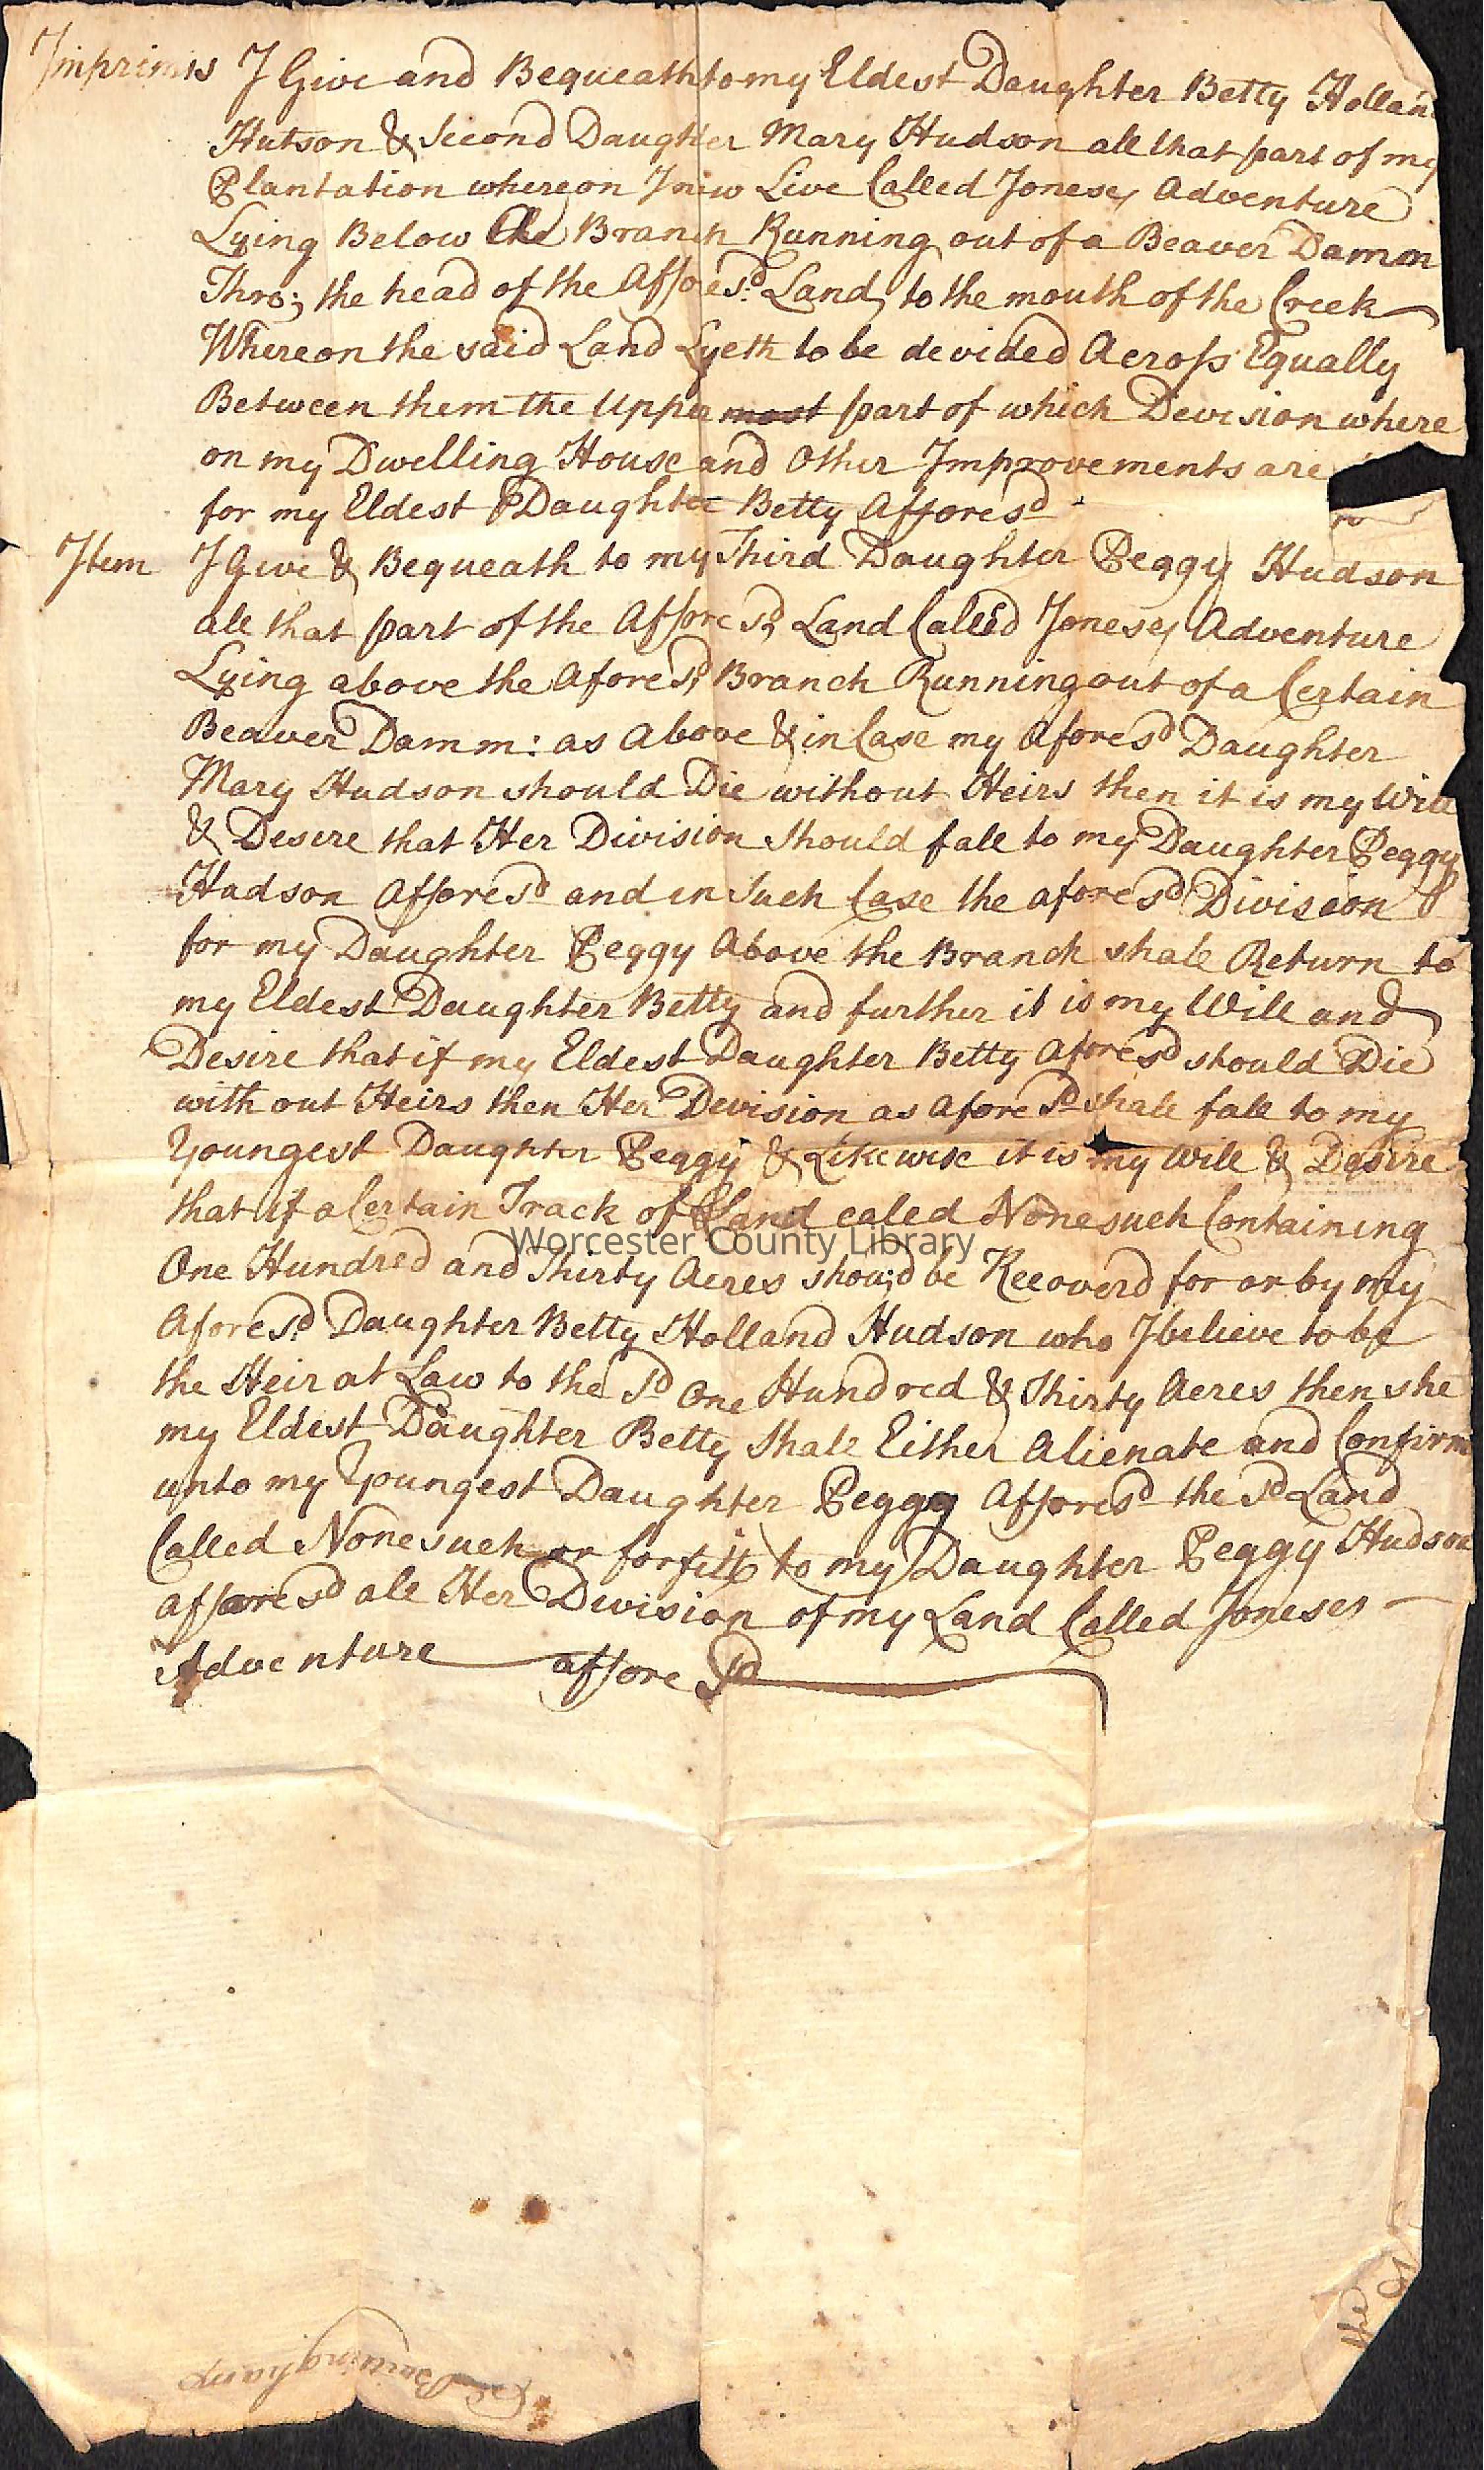 Imprimis I Give and Bequeath to my Eldest Daughter Betty Holland
Hutson & Second Daughter Mary Hudson all that part of my
Plantation whereon I now Live Called Joneses Adventure
Lying Below the Branch Running out of a Beaver Damm
Thro; the head of the Affores.d Land, to the mouth of the Creek
Whereon the said Land Lyeth to be devided Across Equally
Between them the Upper most part of which Devision where
on my Dwelling House and Other Improvements are
for my Eldest Daughter Betty Afforesd
Item I Give & Bequeath to my Third Daughter Peggy Hudson
all that part of the Afforesd, Land Called Joneses Adventure
Lying above the Aforesd, Branch Running out of a Certain
Beaver Damm: as Above & in Case my Aforesd Daughter
Mary Hudson should Die without Heirs then it is my Will
& Desire that Her Division Should fall to my Daughter Peggy
Hudson Afforesd and in Such Case the aforesd Division
for my Daughter Peggy Above the Branch shall Return to
my Eldest Daughter Betty and further it is my Will and
Desire that if my Eldest Daughter Betty Aforesd should Die
with out Heirs then Her Devision as aforesd shall fall to my
Youngest Daughter Peggy & Likewise it is my Will & Desire
that if a Certain Track of Land caled Nonesuch Containing
One Hundred and Thirty Acres should be Recoverd for or by my
Afores.d Daughter Betty Holland Hudson who I believe to be
the Heir at Law to the Sd One Hundred & Thirty Acres then she
my Eldest Daughter Betty Shall Either Alienate and Confirm
unto my Youngest Daughter Peggy Afforesd the Sd Land
Called Nonesuch or forfitt to my Daughter Peggy Hudson
afforesd all Her Devision of my Land Called Joneses
Adventure afforeSd
Worcester County Library
the